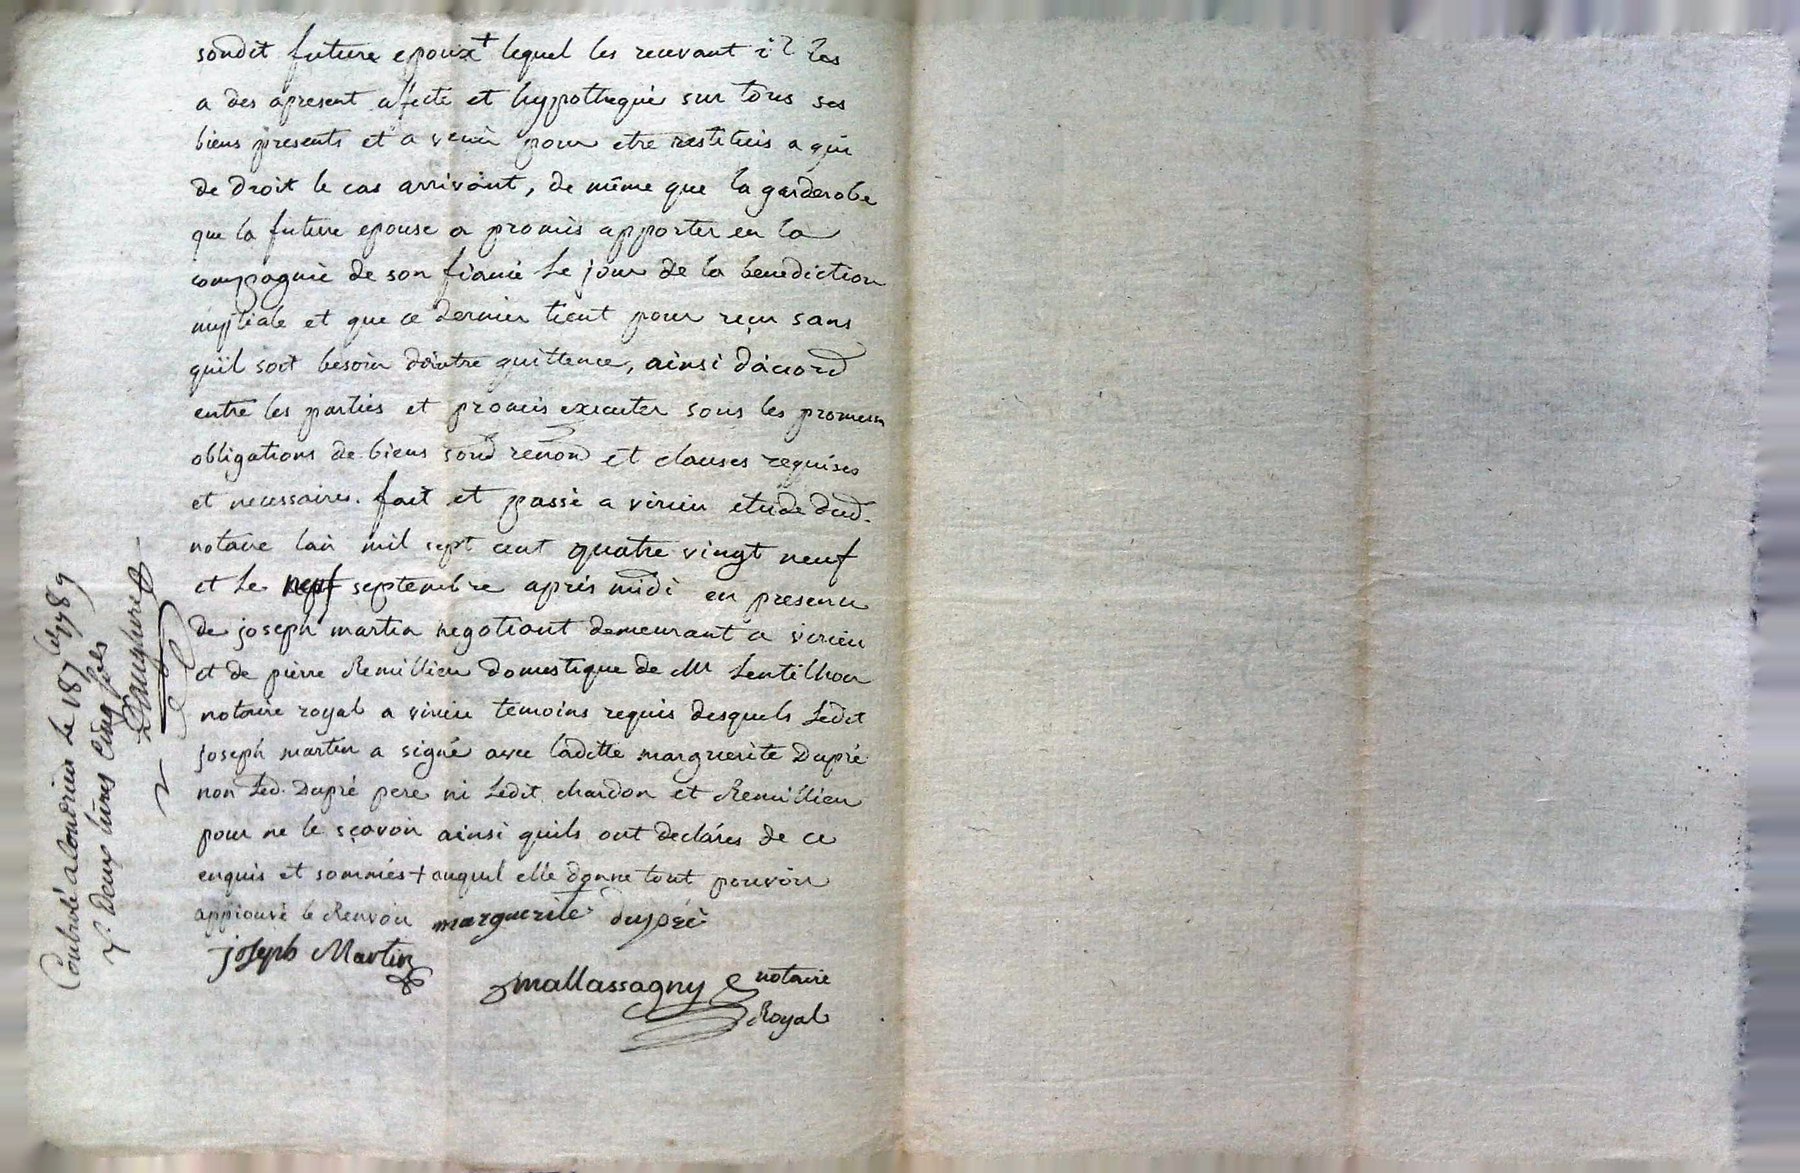 sondit future epoux + lequel les recevant il les
a des apresent afecté et hypothequé sur tous ses
biens presents et a venir pour etre restitués a qui
de droit le cas arrivant, de même que la garderobe
que la future epouse a promis apporter en la
compagnie de son fiancé le jour de la benediction
nuptiale et que ce dernier tient pour reçu sans
quil soit besoin dautre quittence, ainsi dacord
entre les parties et promis executer sous les promesses
obligations de biens soud renond et clauses requises
et necessaires. fait et passé a virieu etude dud.
notaire lan mil sept cent quatre vingt neuf
et le neuf septembre après midi en presence
de joseph martin negotiant demeurant a virieu
et de pierre Remillieu domestique de Mr Lentilhon
notaire royal a virieu temoins requis desquels ledit
joseph martin a signé avec laditte marguerite Dupré
non led. Dupré pere ni ledit chardon et Remillieu
pour ne le sçavoir ainsi quils ont declarés de ce
enquis et sommés + auquel elle donne tout pouvoir
approuvé le Renvoi marguerite dupré
joseph Martin
mallassagny notaire
Royal
Controlé a Condrieu le 18 7bre 1789
R. deux livres cinq sols